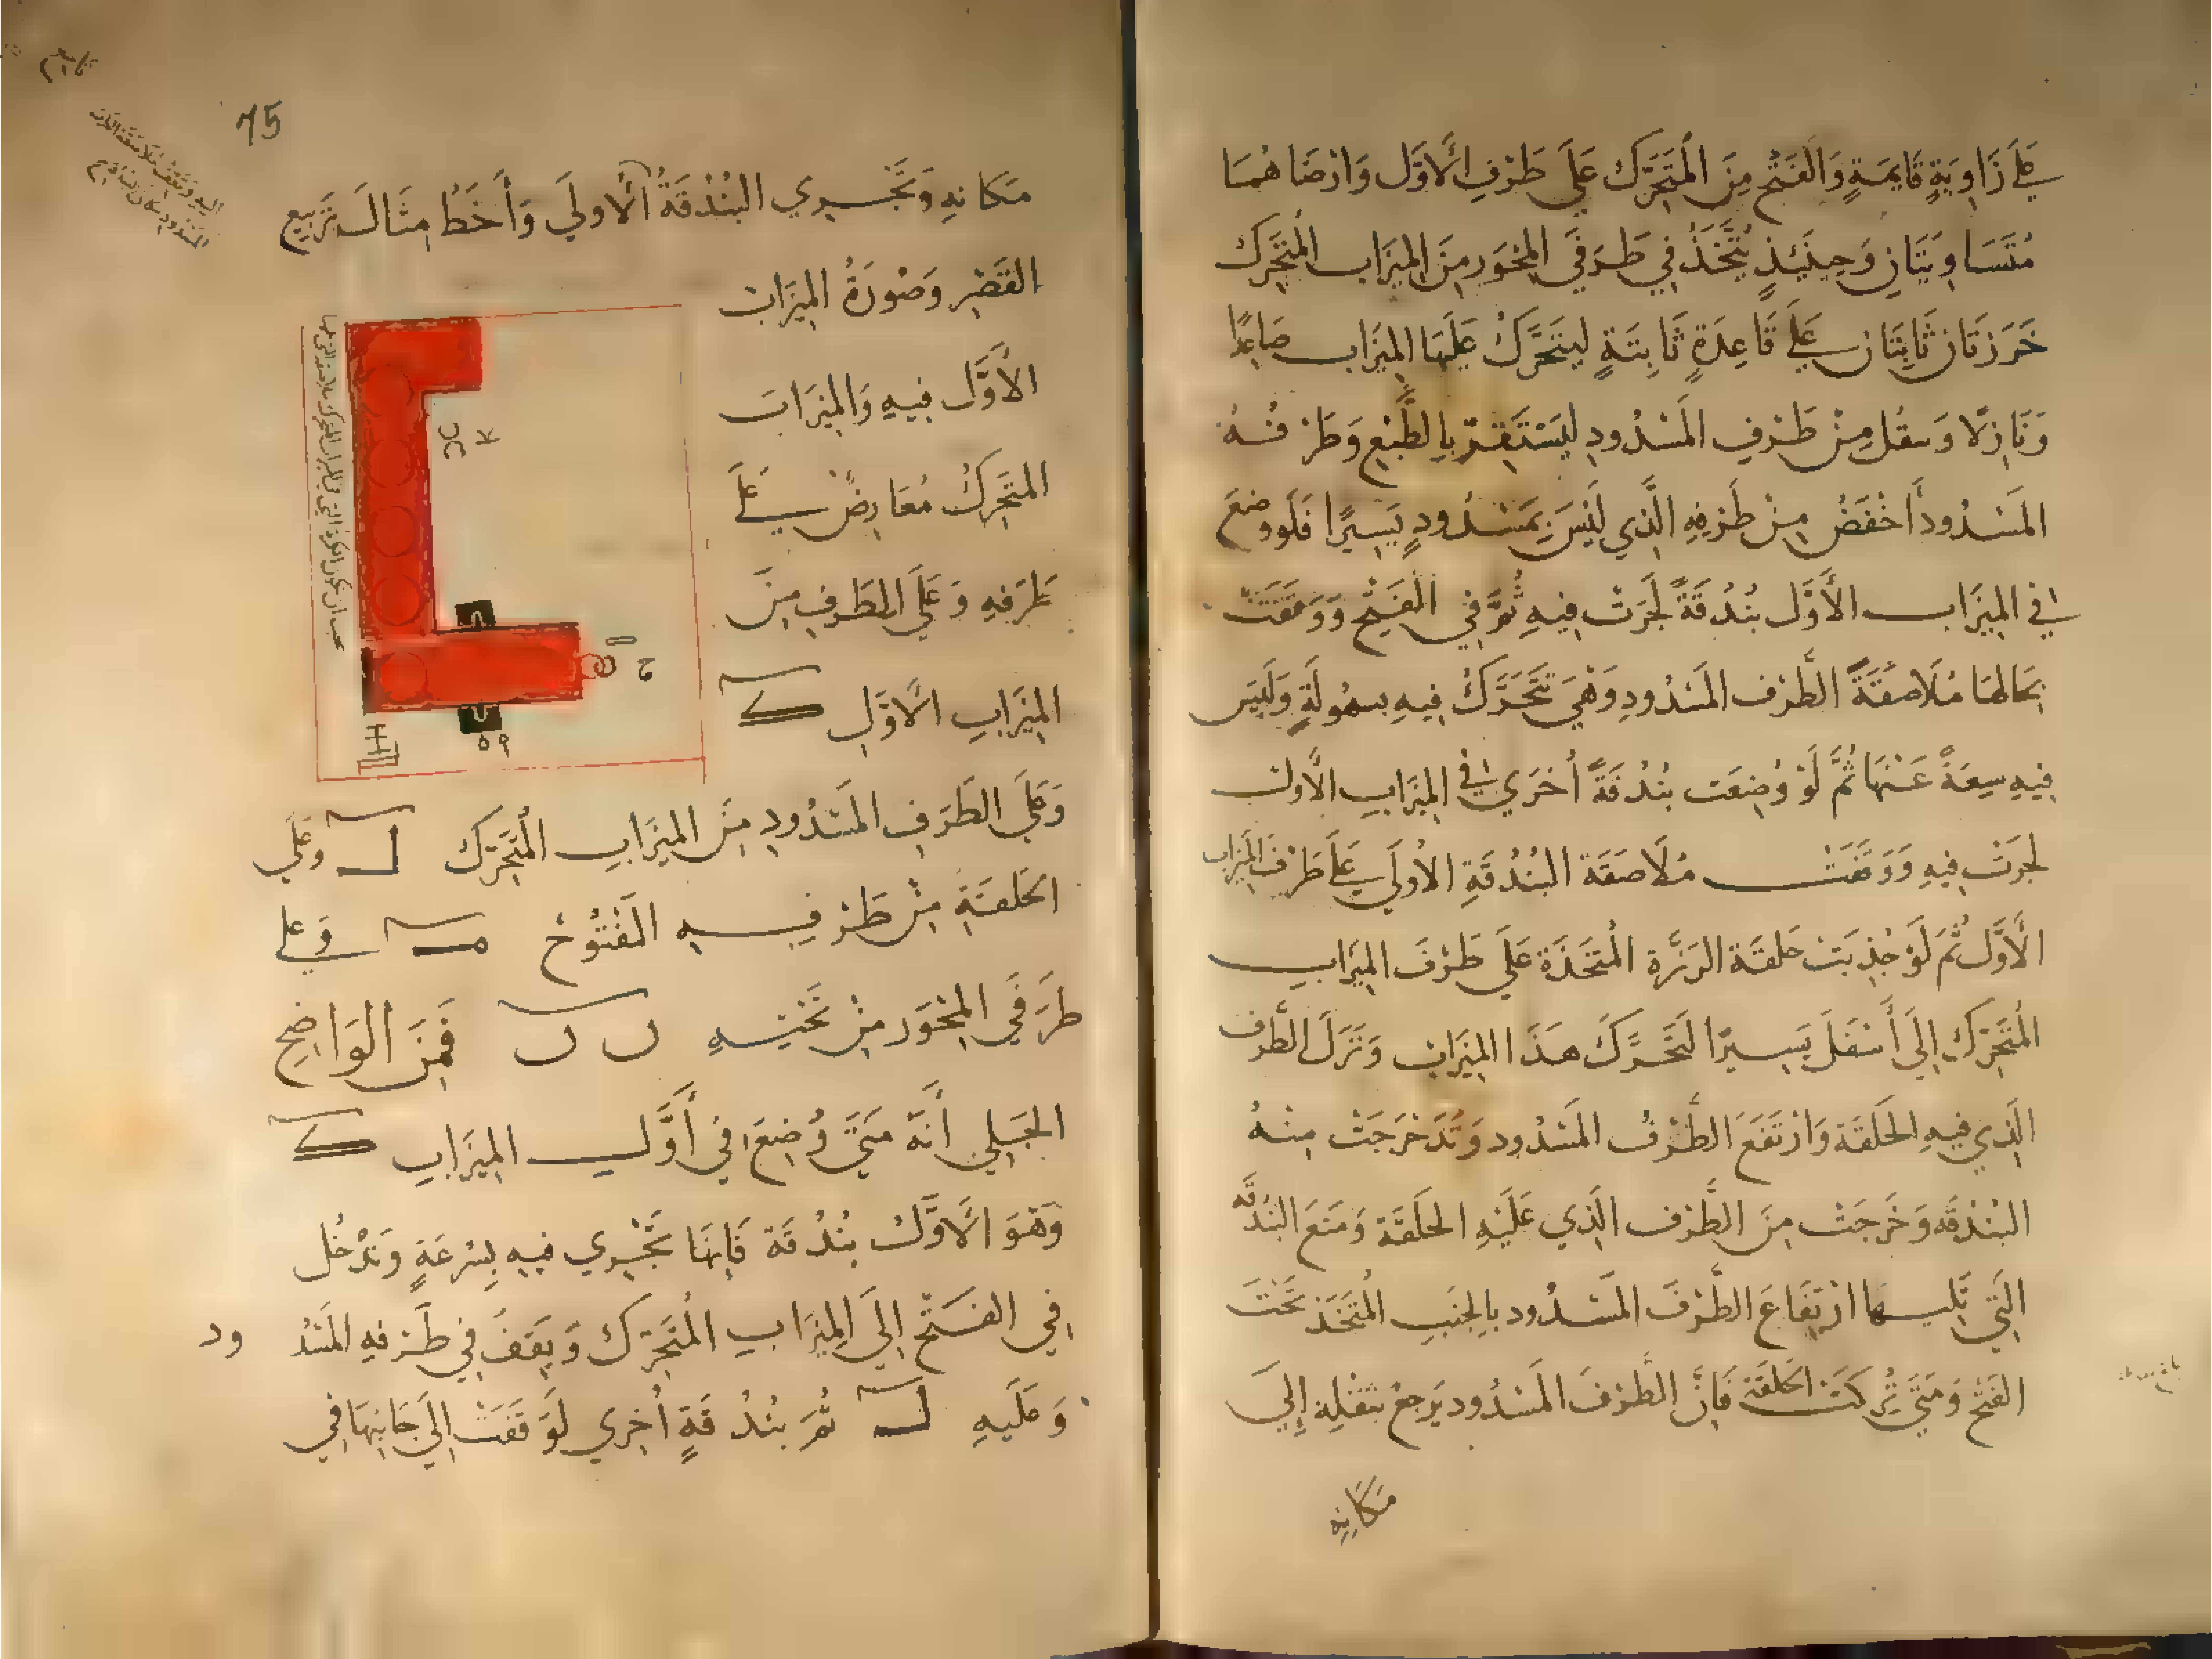 على زاوية قايمة والفتح من المتحرك على طرف الأول وارضاهما
متساويتان وحينئذ يتخذ في طرفي المحور من الميزاب المتحرك
خرزتان ثابتتان على قاعدة ثابتة ليتحرك عليها الميزاب صاعدا
ونازلا وسفل من طرف المسدود ليستقر بالطبع وطرفه
المسدود أخفض من طرفه الذي ليس بمسدود يسيرا فلو وضع
في الميزاب الأول بندقة لجرت فيه ثم في الفتح ووقفت
بحالها ملاصقة الطرف المسدود وهي تتحرك فيه بسهولة وليس
فيه سعة عنها ثم لو وضعت بندقة أخرى في الميزاب الأول
لجرت فيه ووقفت ملاصقة البندقة الأولى على طرف الميزاب
الأول ثم لو جذبت حلقة الرزة المتخذة على طرف الميزاب
المتحرك إلى أسفل يسيرا لتحرك هذا الميزاب ونزل الطرف
الذي فيه الحلقة وارتفع الطرف المسدود وتدحرجت منه
البندقة وخرجت من الطرف الذي عليه الحلقة ومنع البندقة
التي تليها ارتفاع الطرف المسدود بالجنب المتخذ تحت
الفتح ومتى تركت الحلقة فإن الطرف المسدود يرجع بثقله إلى
مكانه
75
مكانه وتجري البندقة الأولى وأخط مثال تربيع
القصر وصورة الميزاب
الأول فيه والميزاب
المتحرك معارض على
طرفه وعلى الطرف من
الميزاب الأول ك
وعلى الطرف المسدود من الميزاب المتحرك ل وعلى
الحلقة من طرفه المفتوح م وعلى
طرفي المحور من تحته ن ن فمن الواضح
الجلي أنه متى وضع في أول الميزاب ك
وهو الأول بندقة فإنها تجري فيه بسرعة وتدخل
في الفتح إلى الميزاب المتحرك ويقف في طرفه المسدود
وعليه ل ثم بندقة أخرى لوقفت إلى جانبها في